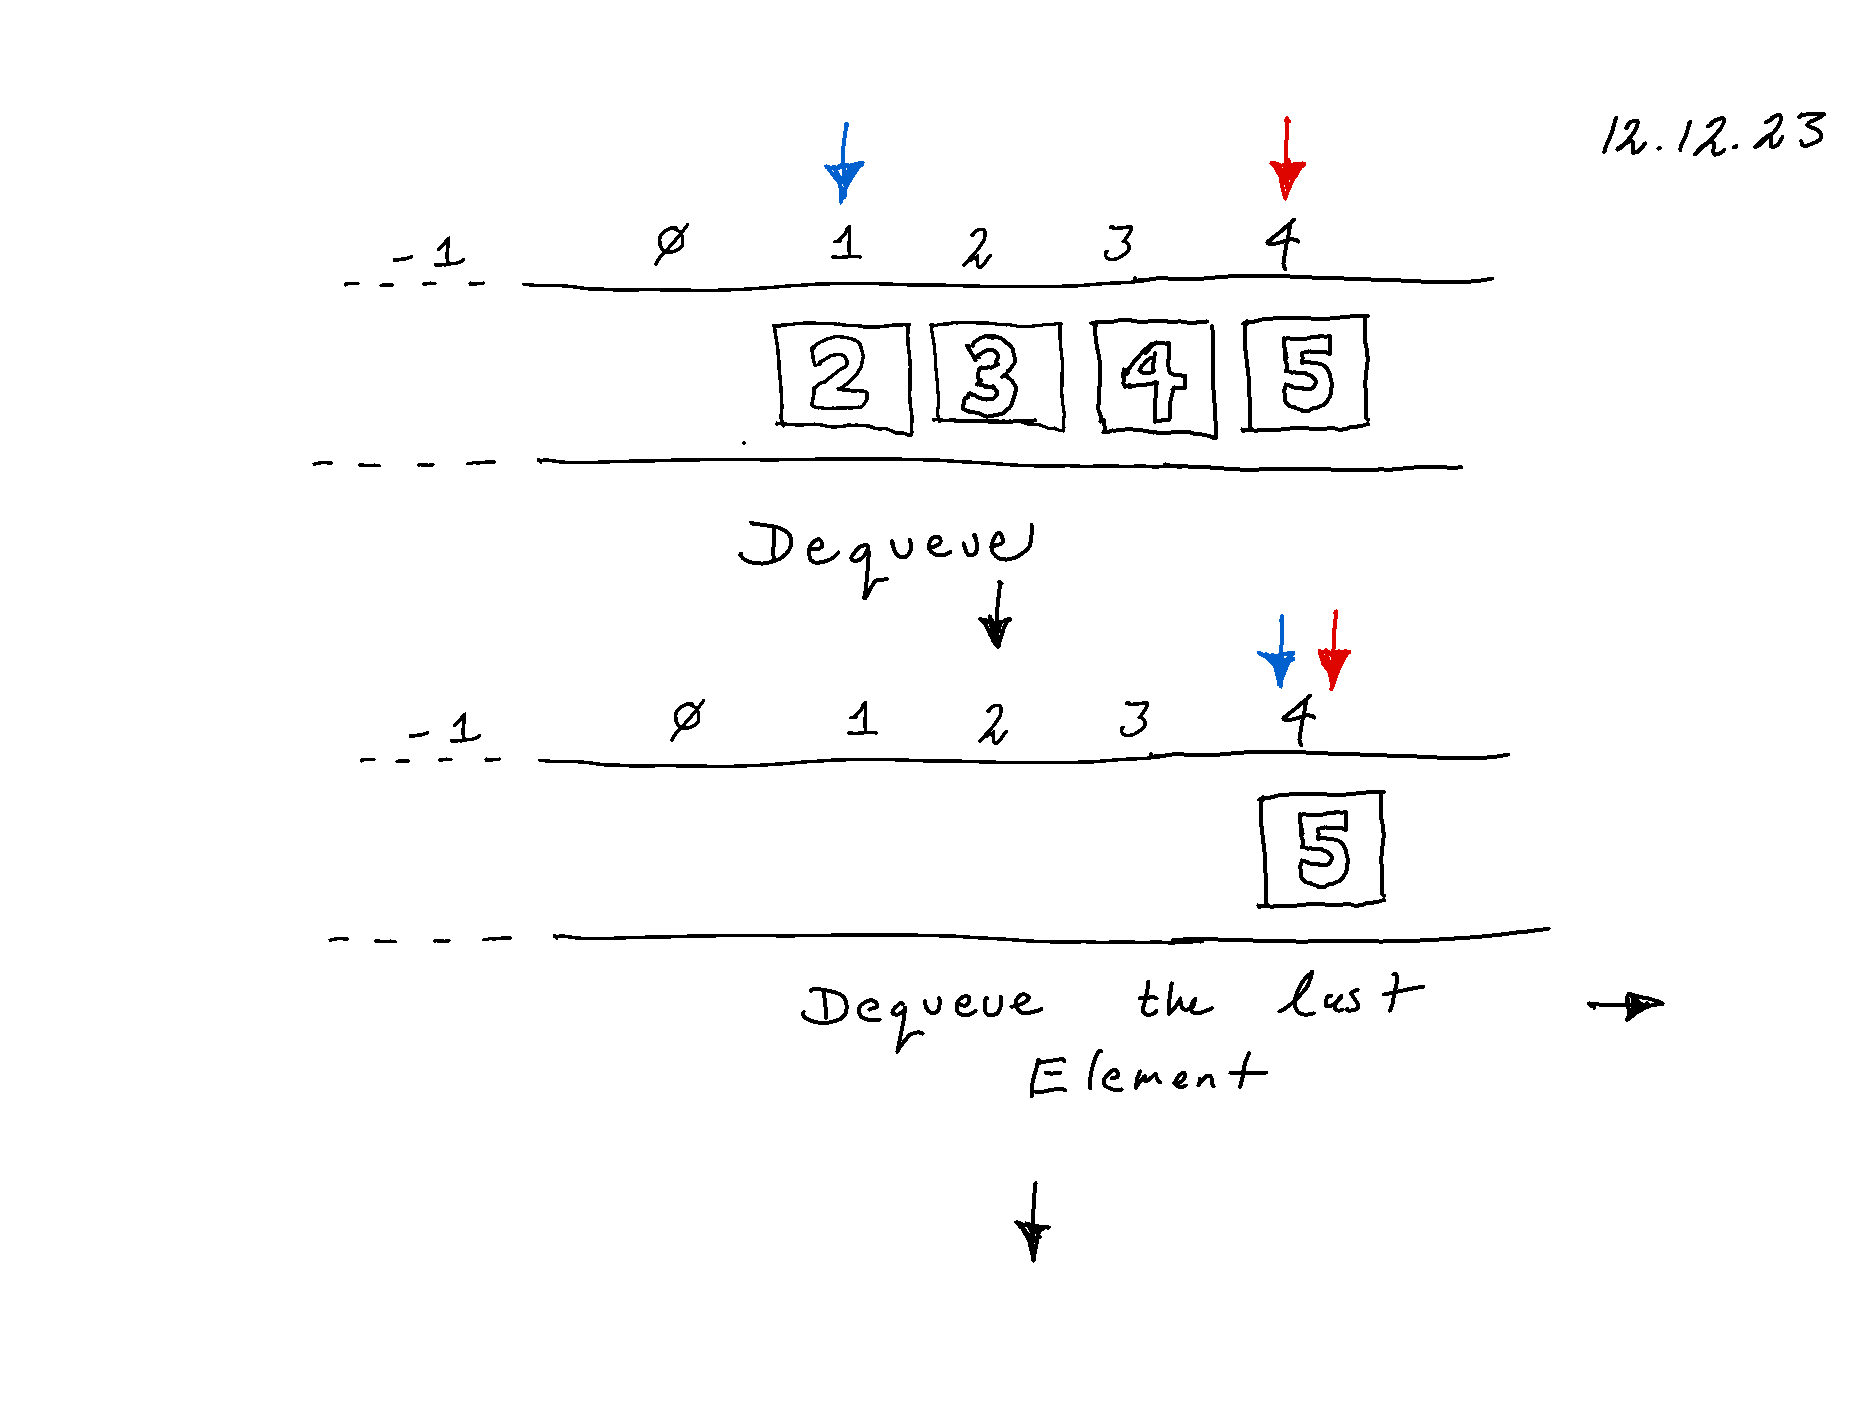 12.12.23
-1 Ø 1 2 3 4
2 3 4 5
Dequeue
-1 Ø 1 2 3 4
5
Dequeue the last
Element